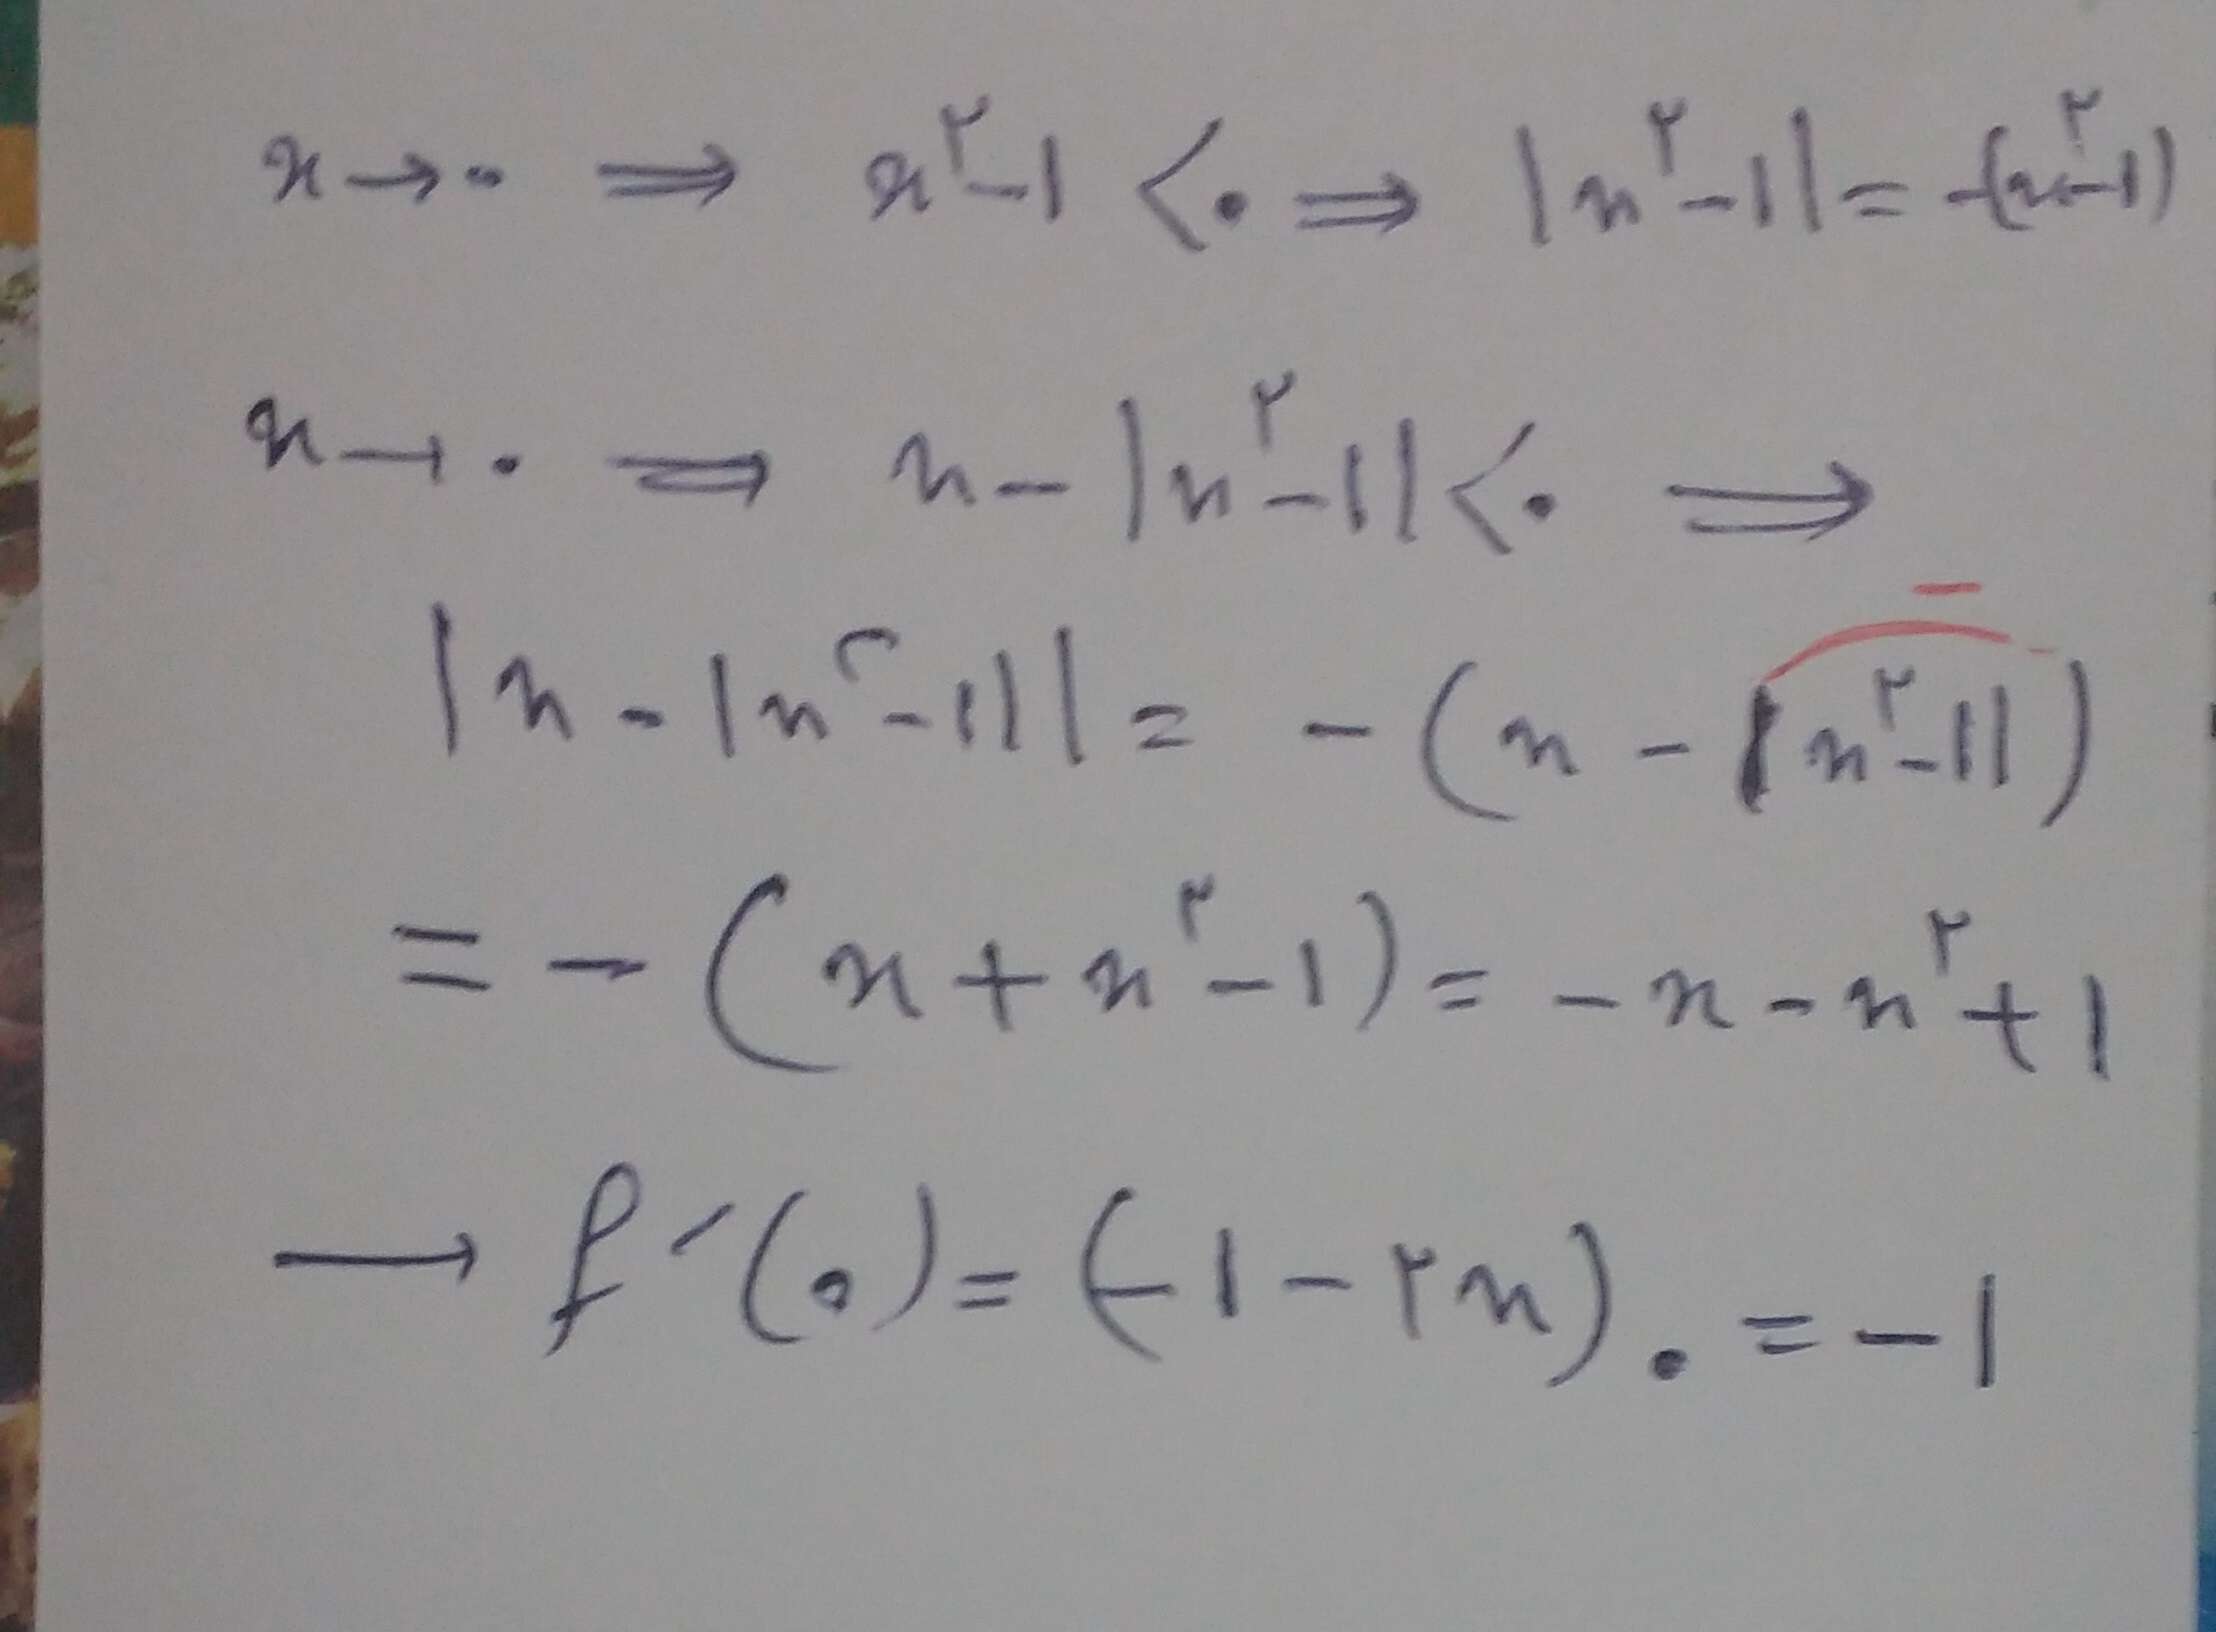 x → ۰ ⇒ x^۲ - ۱ < ۰ ⇒ |x^۲ - ۱| = -(x^۲ - ۱)
x → ۰ ⇒ x - |x^۲ - ۱| < ۰ ⇒
|x - |x^۲ - ۱|| = - (x - |x^۲ - ۱|)
= - (x + x^۲ - ۱) = - x - x^۲ + ۱
→ f′(۰) = (-۱ - ۲x)۰ = - ۱